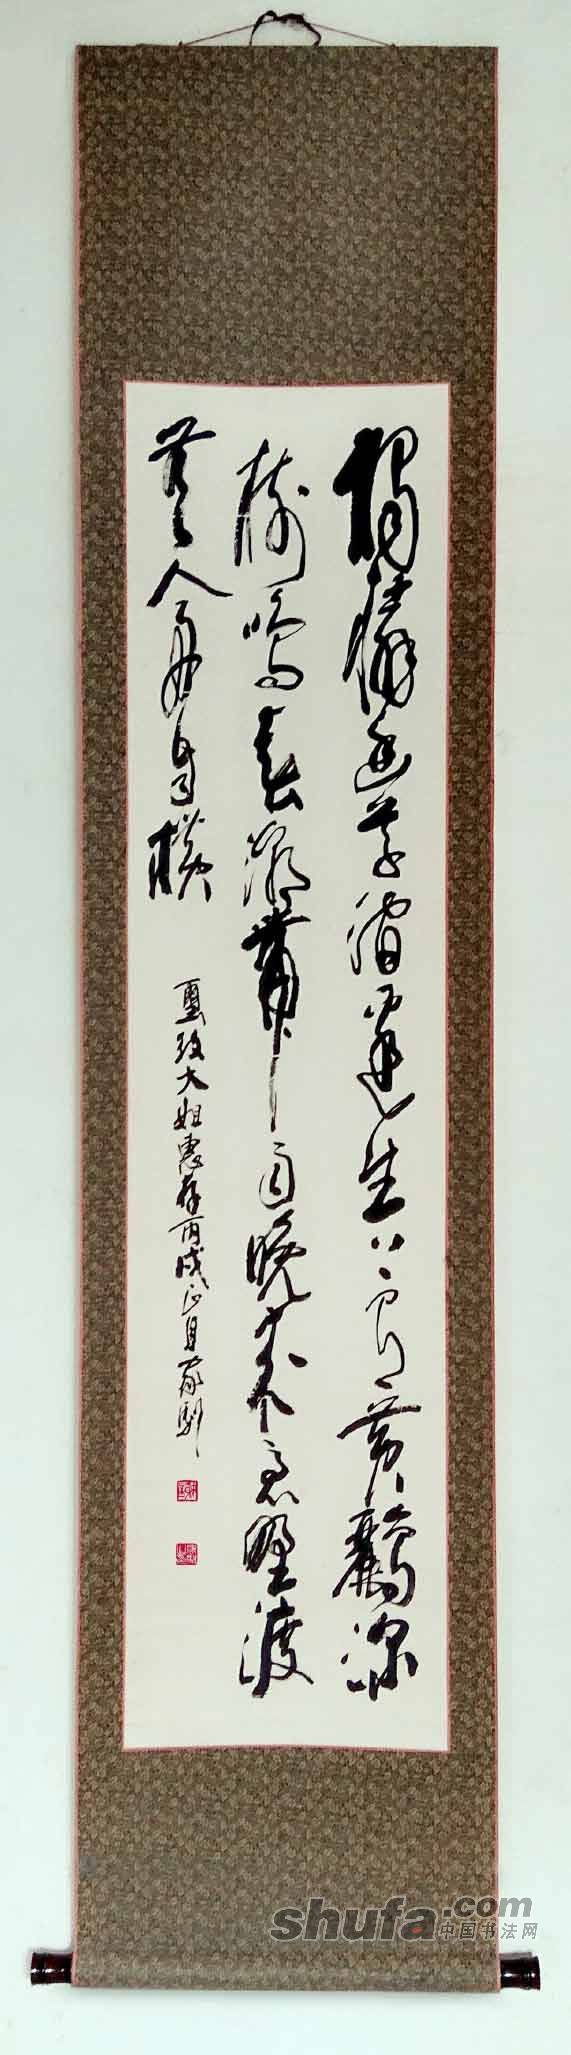 獨憐幽草澗邊生上有黃鸝深
樹鳴春潮帶雨晚來急野渡
無人舟自橫
大姐惠存丙戌正月
shufa.com
中国书法网